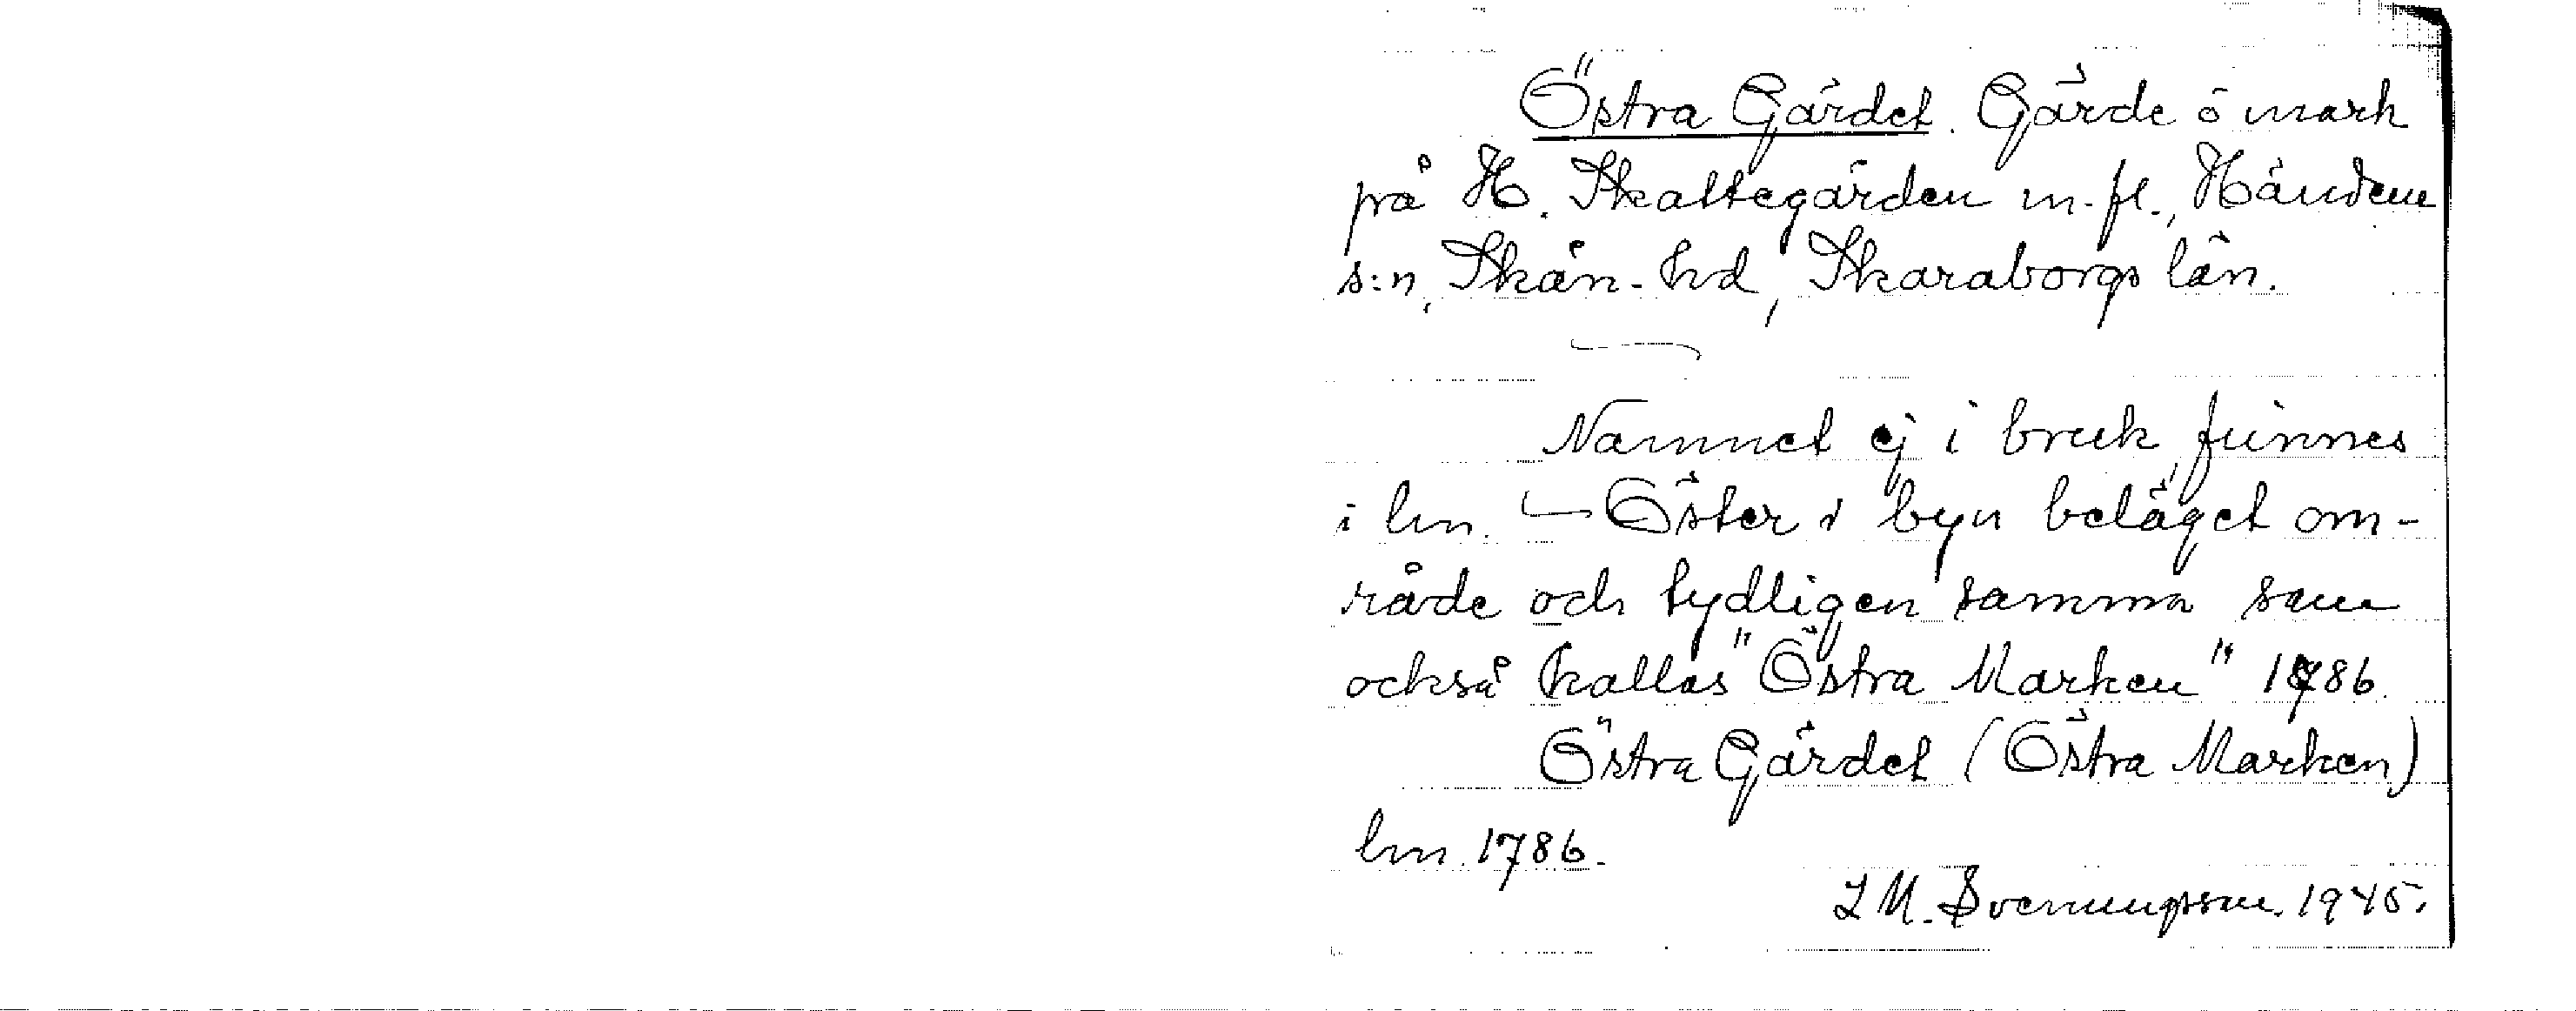 Östra Gärdet. Gärde o mark
på H. Skattegården m.fl., Händene
s:n, Skån. hd, Skaraborgs län.
Namnet ej i bruk, finnes
i lm. – Öster i byn beläget om-
råde och tydligen samma som
också kallas "Östra Marken" 1786.
Östra Gärdet (Östra Marken)
lm. 1786.
L M. Svenungsson. 1945.